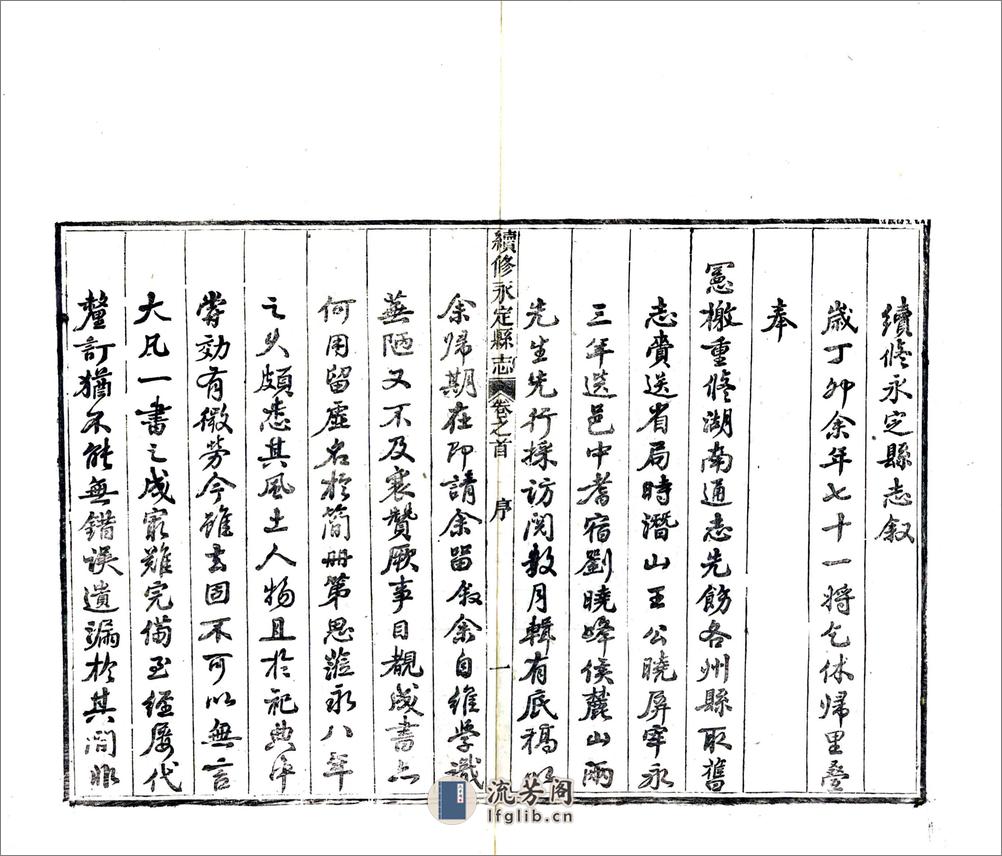 續修永定縣志叙
歲丁卯余年七十一將乞休歸里疊
奉
憲檄重修湖南通志先飭各州縣取舊
志賫送省局時潛山王公曉屏宰永
三年遂邑中耆宿劉曉峰侯麓山兩
先生先行採訪閱數月輯有底稿
續修永定縣志 卷之首 序 一
余歸期在即請余留叙余自維學識
蕪陋又不及襄贊厥事目覩成書亦
何用留虛名於簡册第思蒞永八年
之久頗悉其風土人物且於祀典中
嘗効有微勞今雖去固不可以無言
大凡一書之成最難完備至經屢代
釐訂猶不能無錯誤遺漏於其間非
流芳阁
lfglib.cn